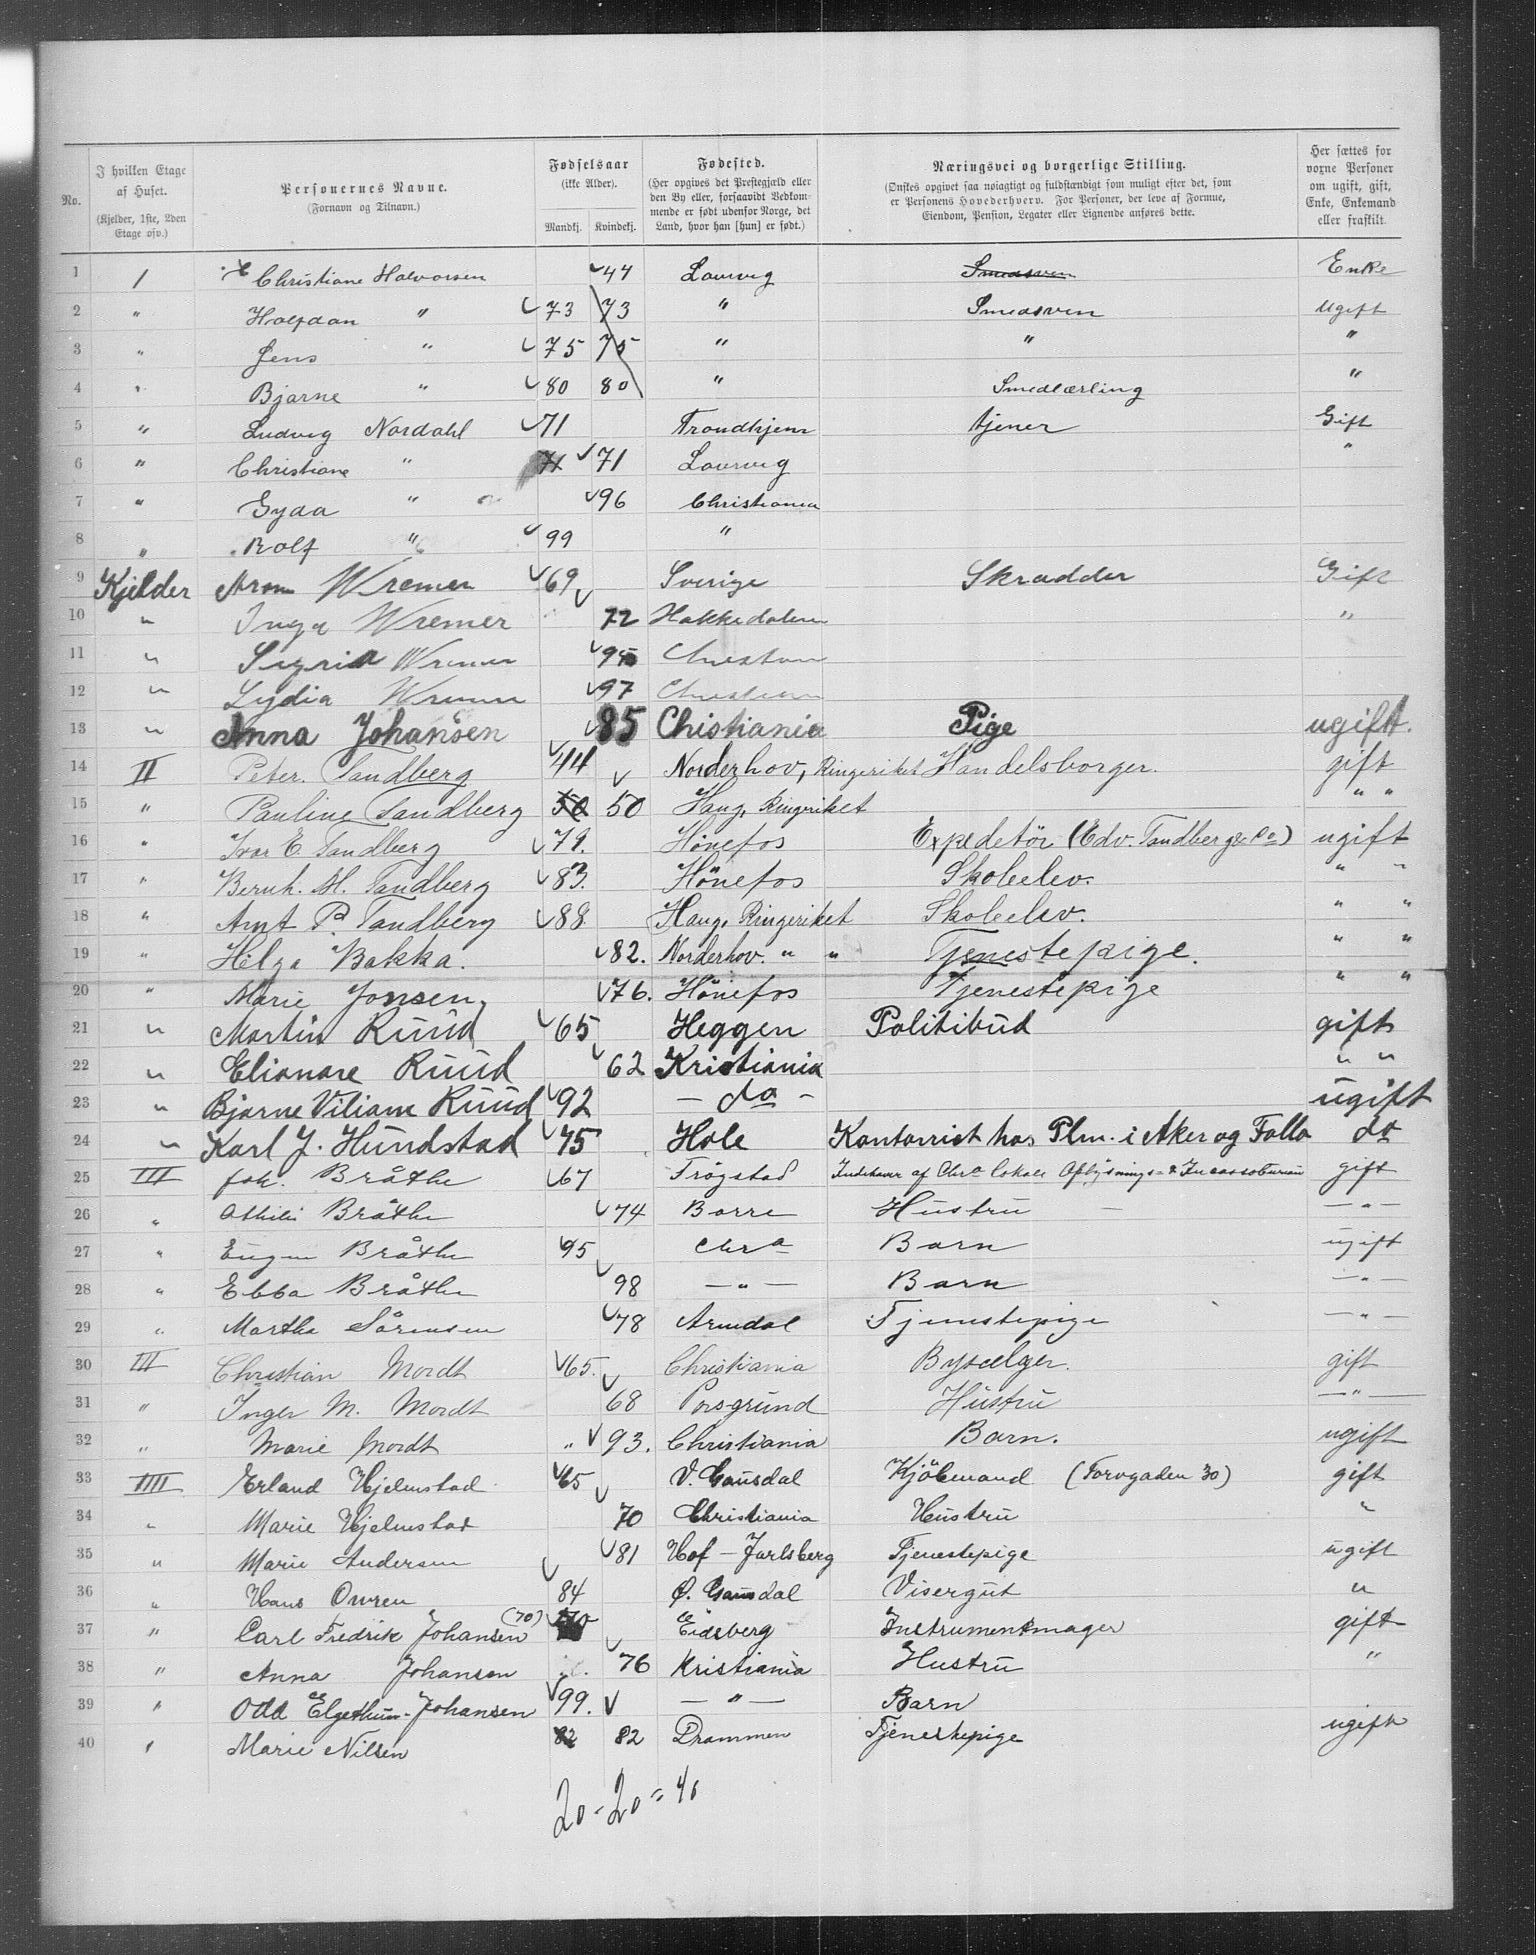 No.
I hvilken Etage af Huset. (Kjelder, 1ste, 2den Etage osv.)
Personernes Navne. (Fornavn og Tilnavn.)
Fødselsaar (ikke Alder). Mandkj. Kvindekj.
Fødested. (Her opgives det Prestegjæld eller den By eller, forsaavidt Vedkommende er født udenfor Norge, det Land, hvor han [hun] er født.)
Næringsvei og borgerlige Stilling. (Ønskes opgivet saa nøiagtigt og fuldstændigt som muligt efter det, som er Personens Hovederhverv. For Personer, der leve af Formue, Eiendom, Pension, Legater eller Lignende anføres dette.
Her sættes for voxne Personer om ugift, gift, Enke, Enkemand eller fraskilt.
1 1 Christiane Halvorsen 44 Laurvig Smedsven Enke
2 " Halfdan " 73 73 " Smedsven Ugift
3 " Jens " 75 75 " " "
4 " Bjarne " 80 80 " Smedlærling "
5 " Ludvig Nordahl 71 Trondhjem tjener Gift
6 " Christiane " 71 71 Laurvig "
7 " Gyda " 96 Christiania
8 " Rolf " 99 "
9 Kjelder Aron Wremer 69 Sverige Skradder Gift
10 " Inga Wremer 72 Hakkedalen "
11 " Sigrid Wremer 95
12 " Lydia Wremer 97
13 " Anna Johansen 85 Chistiania Pige ugift.
14 II Peter. Tandberg 44 Norderhov, Ringeriket Handelsborger. gift
15 " Pauline Tandberg 50 50 Haug, Ringeriket " "
16 " Ivar E. Tandberg 79. Hönefos Expedetör (Edv. Tandberg & Co) ugift
17 " Bernh. M. Tandberg 83. Hönefos Skoleelev. " "
18 " Arnt P. Tandberg 88 Haug, Ringeriket Skoleelev. " "
19 " Helga Bakka. 82. Norderhov. " " Tjenestepige. " "
20 " Marie Jonsen 76. Hönefos Tjenestepige " "
21 " Martin Ruud 65 Heggen Politibud gift
22 " Elianore Ruud 62 Kristiania " "
23 " Bjarne Viliam Ruud 92 - do - ugift
24 " Karl J. Hundstad 75 Hole Kontorist hos Plm. i Aker og Follo do
25 III Joh. Bråthe 67 Trögstad Indehaver af Chra Lokale Oplysnings- & Incassobureau gift
26 " Bråthe 74 Borre Hustru — " —
27 " Eugen Bråthe 95 Chra Barn ugift
28 " Ebba Bråthe 98 — " — Barn — " —
29 " Martha Sörensen 78 Arendal Tjenestepige — " —
30 III Christian Mordt 65. Christiania Bysælger. gift
31 " Inger M. Mordt 68 Porsgrund Hustru — " —
32 " Marie Mordt " 93. Christiania Barn. ugift
33 IIII Erland Hjelmstad 65 V. Gausdal Kjöbmand (Torvgaden 30) gift
34 " Marie Hjelmstad 70 Christiania Hustru "
35 " Marie Andersen 81 Hof - Jarlsberg Tjenestepige ugift
36 " Hans Owren 84 Ø. Gausdal Visergut "
37 " Carl Fredrik Johansen (70) 70 Eidsberg Instrumentmager gift
38 " Anna Johansen 76 Kristiania Hustru "
39 " Odd Elgethun-Johansen 99. — " — Barn
40 " Marie Nilsen 82 82 Drammen Tjenestepige ugift
20 - 20 = 40